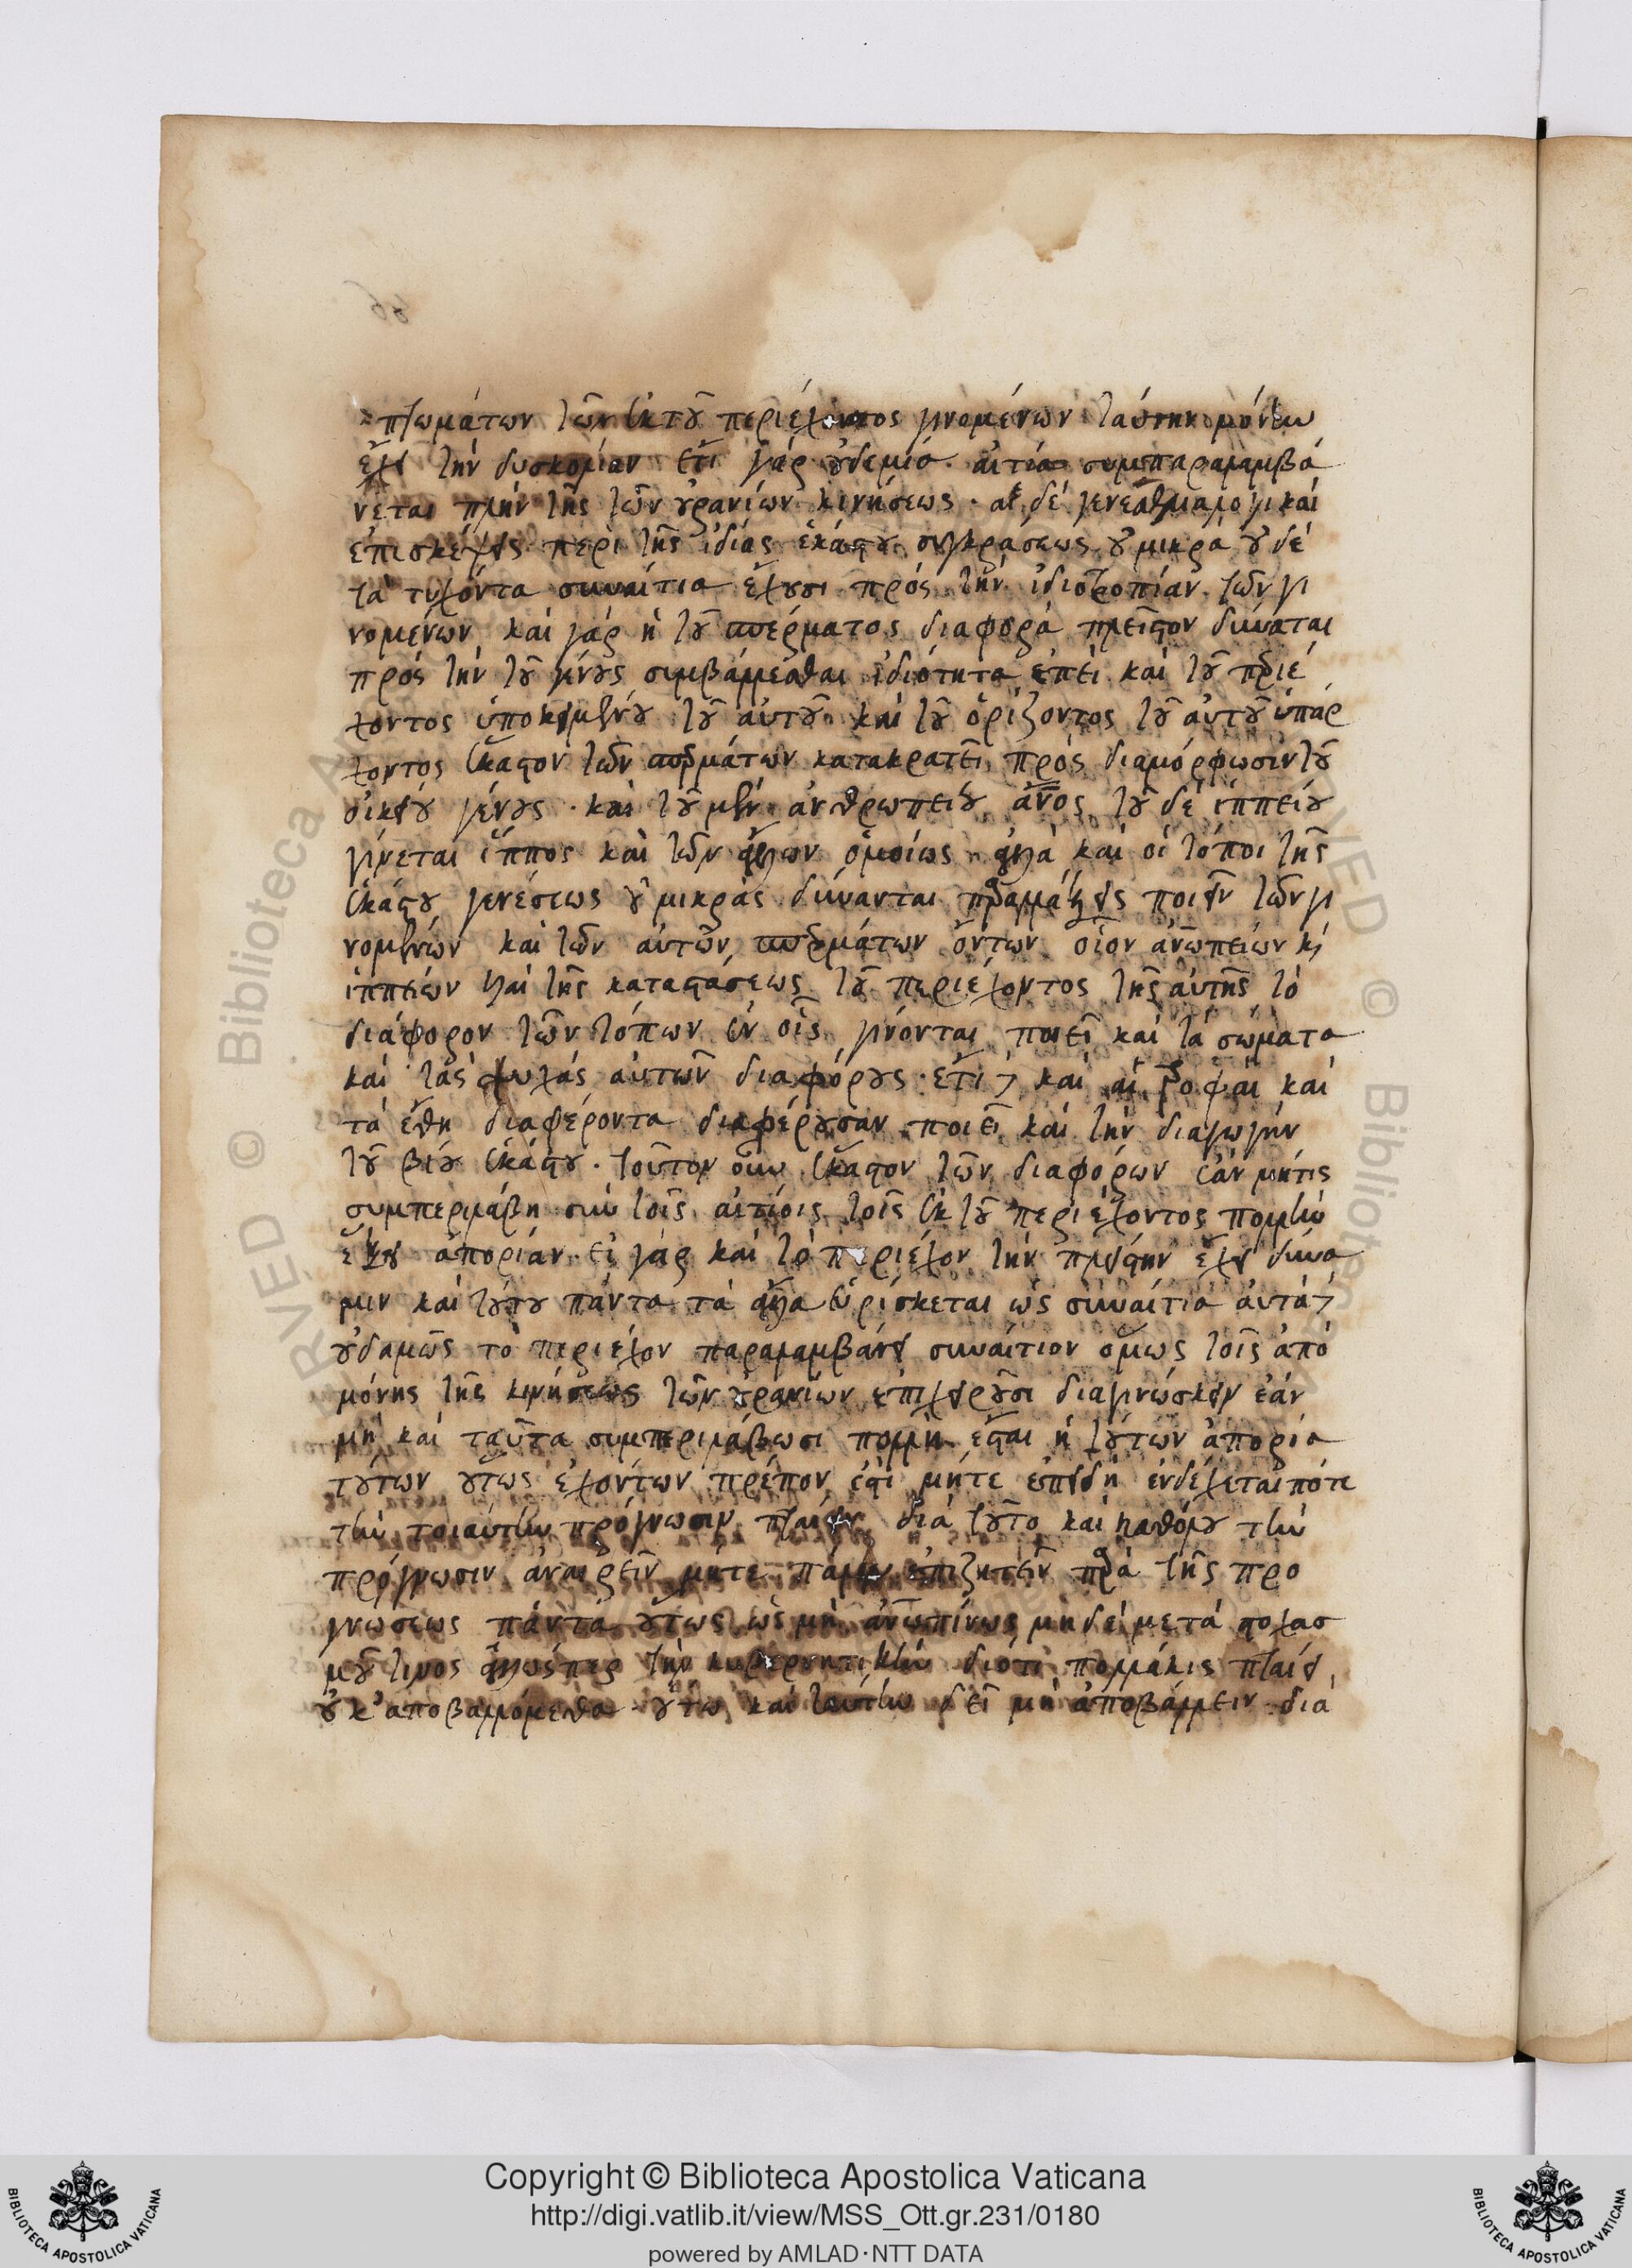 πτωμάτων τῶν ἐκ τοῦ περιέχοντος γινομένων ταύτην μόνην
ἔχει τὴν δυσκολίαν ἔτι γὰρ οὐδεμία αἰτία συμπαραλαμβά
νεται πλὴν τῆς τῶν οὐρανίων κινήσεως · αἱ δὲ γενεθλιαλογικαὶ
ἐπισκέψεις περὶ τῆς ἰδίας ἑκάστου συγκράσεως οὐ μικρὰ οὐδὲ
τὰ τυχόντα συναίτια ἔχουσι πρὸς τὴν ἰδιοτροπίαν τῶν γι
νομένων καὶ γὰρ ἡ τοῦ σπέρματος διαφορὰ πλεῖστον δύναται
πρὸς τὴν τοῦ γένους συμβάλλεσθαι ἰδιότητα ἐπεὶ καὶ τοῦ περιέ
χοντος ὑποκειμένου τοῦ αὐτοῦ καὶ τοῦ ὁρίζοντος τοῦ αὐτοῦ ὑπάρ
χοντος ἕκαστον τῶν σπερμάτων κατακρατεῖ πρὸς διαμόρφωσιν τοῦ
οἰκείου γένους · καὶ τοῦ μὲν ἀνθρωπείου ἄνος τοῦ δὲ ἱππείου
γίνεται ἵππος καὶ τῶν ἄλλων ὁμοίως ἀλλὰ καὶ οἱ τόποι τῆς
ἑκάστου γενέσεως οὐ μικρὰς δύνανται παραλλάξεις ποιεῖν τῶν γι
νομένων καὶ τῶν αὐτῶν σπερμάτων ὄντων οἷον ἀνωπείων κὶ
ἱππείων καὶ τῆς καταστάσεως τοῦ περιέχοντος τῆς αὐτῆς τὸ
διάφορον τῶν τόπων ἐν οἷς γίνονται ποιεῖ καὶ τὰ σώματα
καὶ τὰς ψυχὰς αὐτῶν διαφόρους · ἔτι καὶ αἱ τροφαὶ καὶ
τὰ ἔθη διαφέροντα διαφέρουσαν ποιεῖ καὶ τὴν διαγωγὴν
τοῦ βίου ἑκάστου · τοῦτον οὖν ἕκαστον τῶν διαφόρων ἐὰν μήτις
συμπεριλάβη σὺν τοῖς αἰτίοις τοῖς ἐκ τοῦ περιέχοντος πολλὴν
ἕξει ἀπορίαν · εἰ γὰρ καὶ τὸ περιέχον τὴν πλείστην ἔχει δύνα
μιν καὶ τούτου πάντα τὰ ἄλλα εὑρίσκεται ὡς συναίτια αὐτὰ
οὐδαμῶς τὸ περιέχον παραλαμβάνει συναίτιον ὅμως τοῖς ἀπὸ
μόνης τῆς κινήσεως τῶν οὐρανίων ἐπιχειροῦσι διαγινώσκειν ἐὰν
μὴ καὶ ταῦτα συμπεριλάβωσι πολλὴ ἔσται ἡ τούτων ἀπορία
τούτων οὕτως ἐχόντων πρέπον ἐστὶ μήτε ἐπειδὴ ἐνδέχεταί ποτε
τὴν τοιαύτην πρόγνωσιν πταίειν διὰ τοῦτο καὶ καθόλου τὴν
πρόγνωσιν ἀναιρεῖν μήτε πάλιν ἐπιζητεῖν παρὰ τῆς προ
γνώσεως πάντα οὕτως ὡς μὴ ἀνωπίνως μηδὲ μετὰ στοχασ
μοῦ τινος ἀλλ' ὥσπερ τὴν κυβερνητικὴν διότι πολλάκις πταίει
οὐκ ἀποβαλλόμεθα οὕτω καὶ ταύτην δεῖ μὴ ἀποβάλλειν διὰ
Copyright © Biblioteca Apostolica Vaticana
http://digi.vatlib.it/view/MSS_Ott.gr.231/0180
powered by AMLAD·NTT DATA